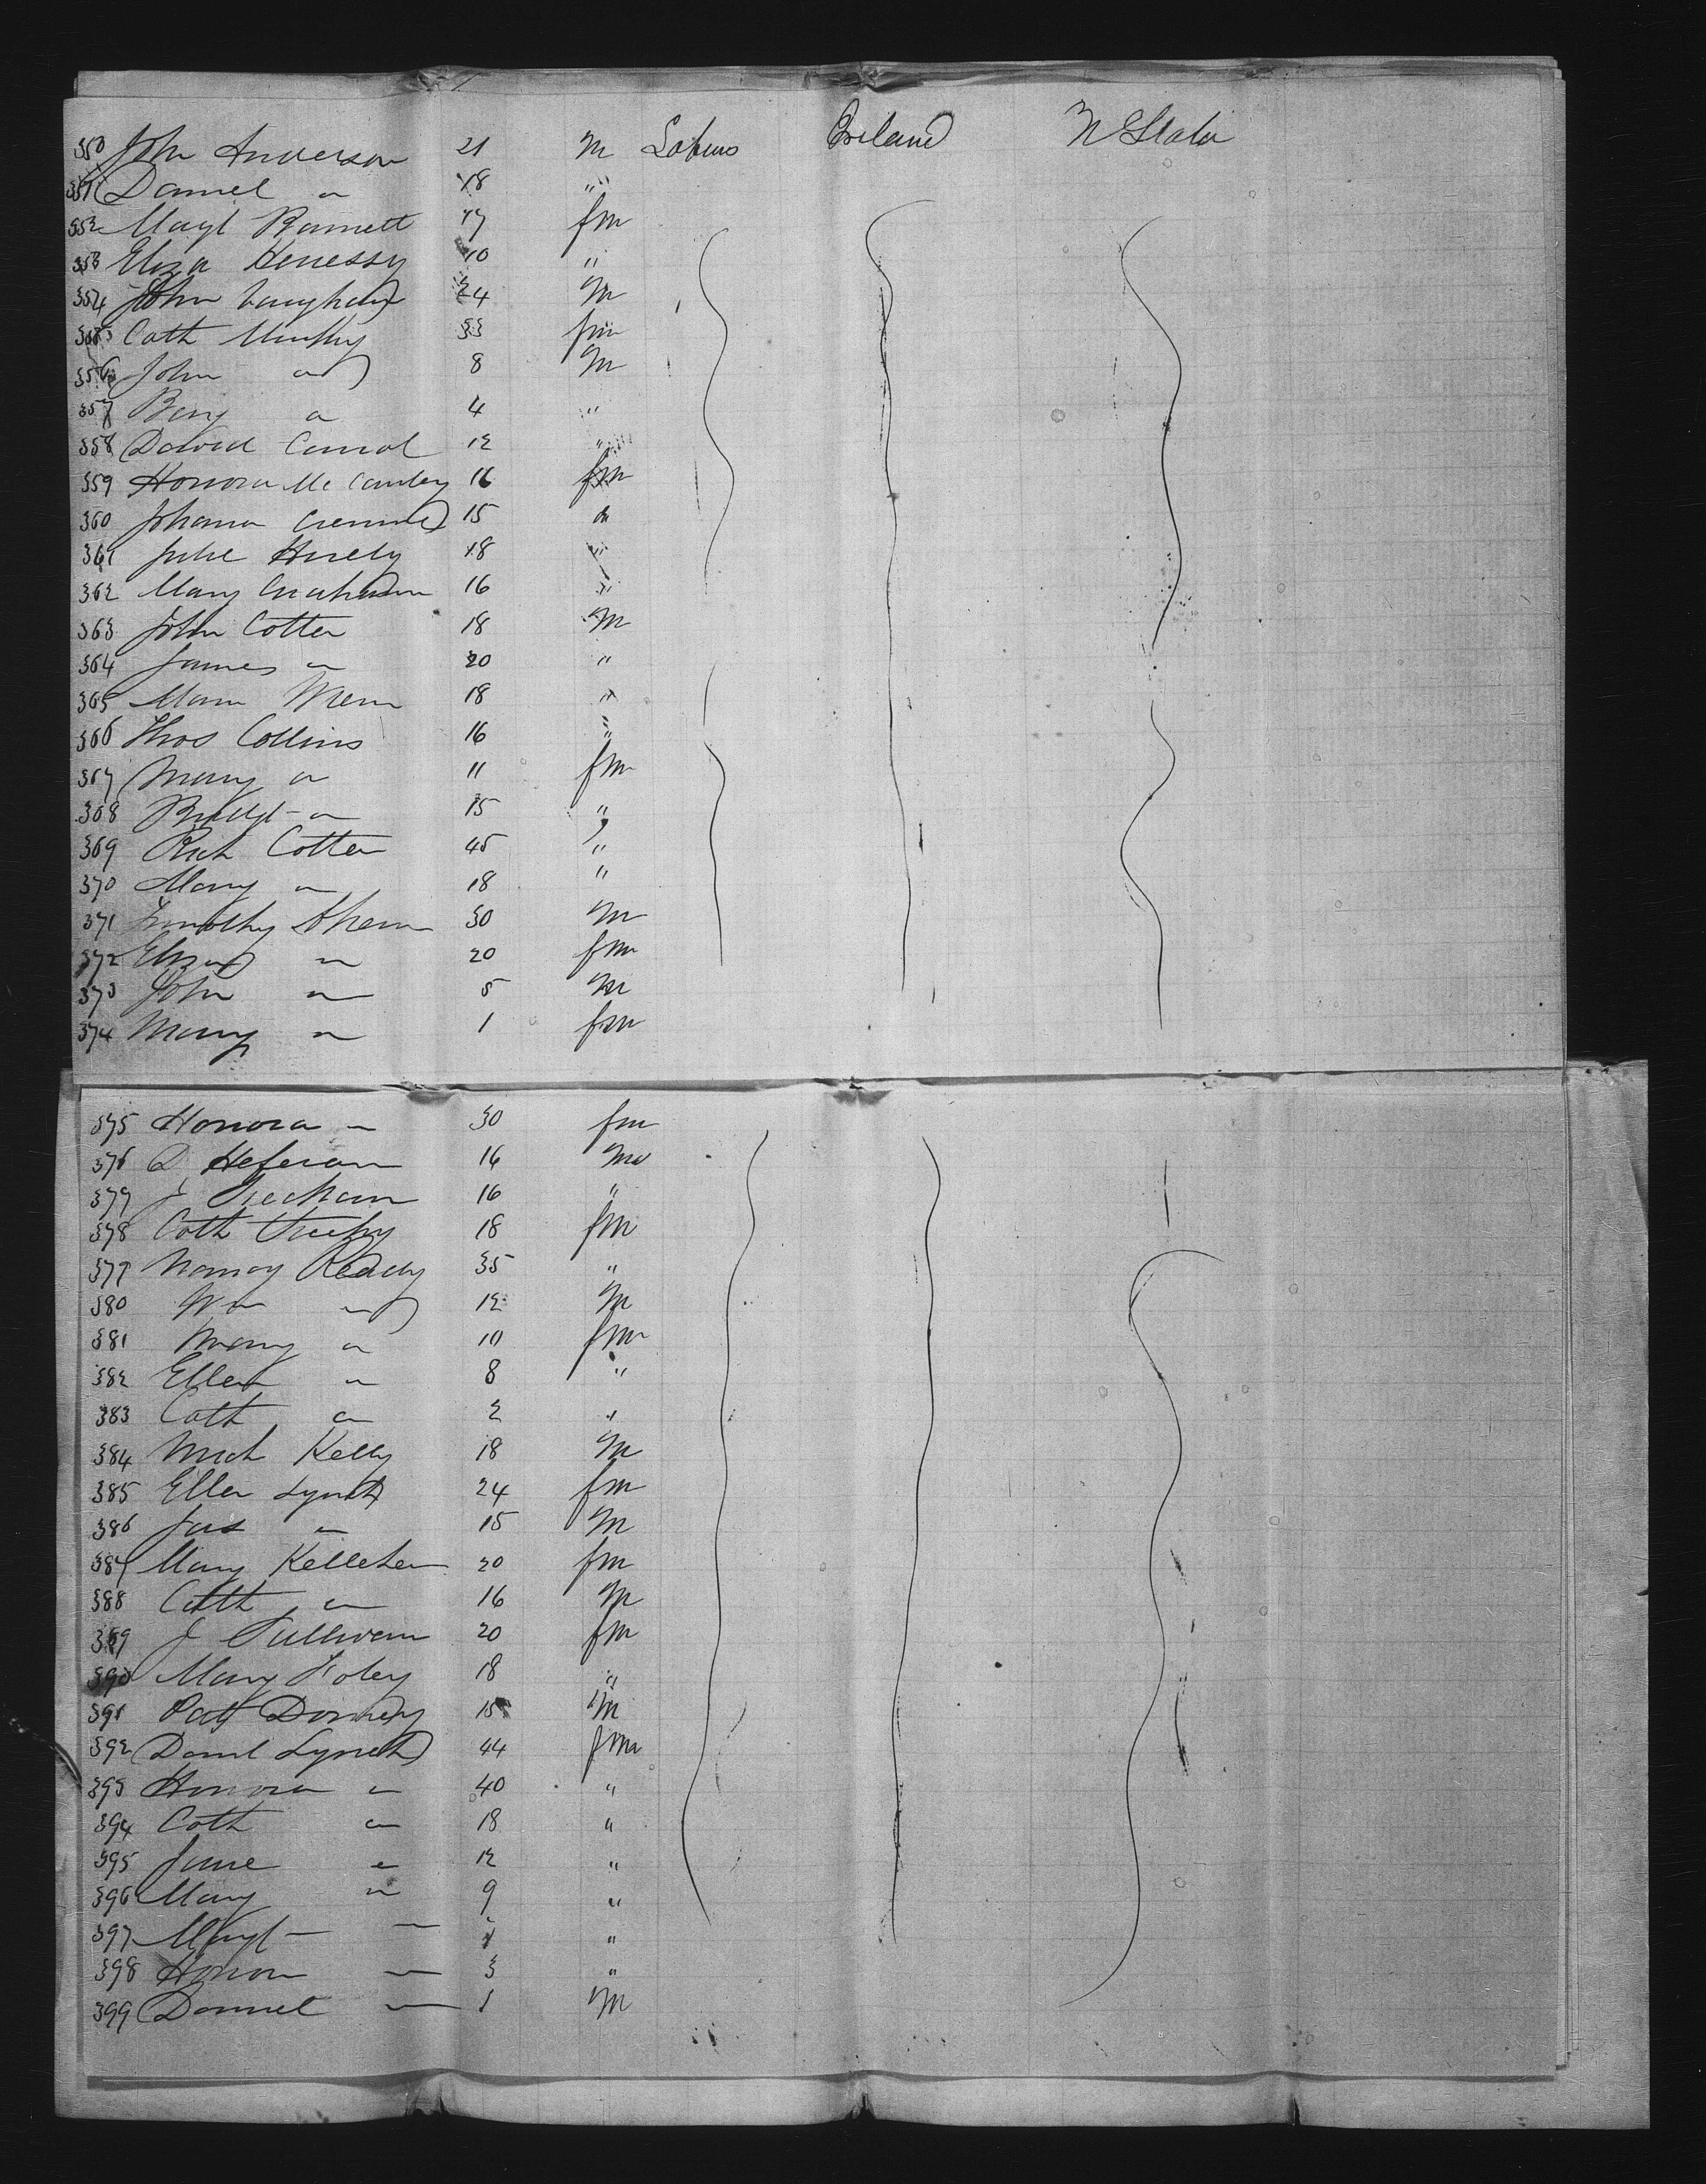 350 John Anderson 21 M Labour Ireland U States
351 Daniel " 18 "
352 Margt Barnett 17 fm
353 Eliza Henessy 10 "
354 John Vaughan 24 M
355 Cath Murphy 33 fm
356 John " 8 M
357 Benj " 4 "
358 David Carrol 12 "
359 Honora Mc Cauley 16 fm
360 Johana 15 "
361 Julie Hurely 18 "
362 Mary 16 "
363 John Cotter 18 M
364 James " 20 "
365 18 "
366 Thos Collins 16 "
367 Mary " 11 fm
368 Bridgt " 15 "
369 Rich Cotter 45 "
370 Mary " 18 "
371 Timothy Ahern 30 M
372 Eliza " 20 fm
373 John " 5 M
374 Mary " 1 fm
375 Honora " 30 fm
376 D Heferan 16 M
377 J 16 "
378 Cath 18 fm
379 Nancy Ready 35 "
380 Wm " 12 M
381 Mary " 10 fm
382 Ellen " 8 "
383 Cath " 2 "
384 Mich Kelly 18 M
385 Ellen Lynch 24 fm
386 Jas " 15 M
387 Mary Kelleher 20 fm
388 Cath " 16 M
389 J Sullivan 20 fm
390 Mary Foley 18 "
391 Patt 15 M
392 Danl Lynch 44 fm
393 Honora " 40 "
394 Cath " 18 "
395 Jane " 12 "
396 Mary " 9 "
397 Margt " "
398 Honora " 3 "
399 Daniel " 1 M